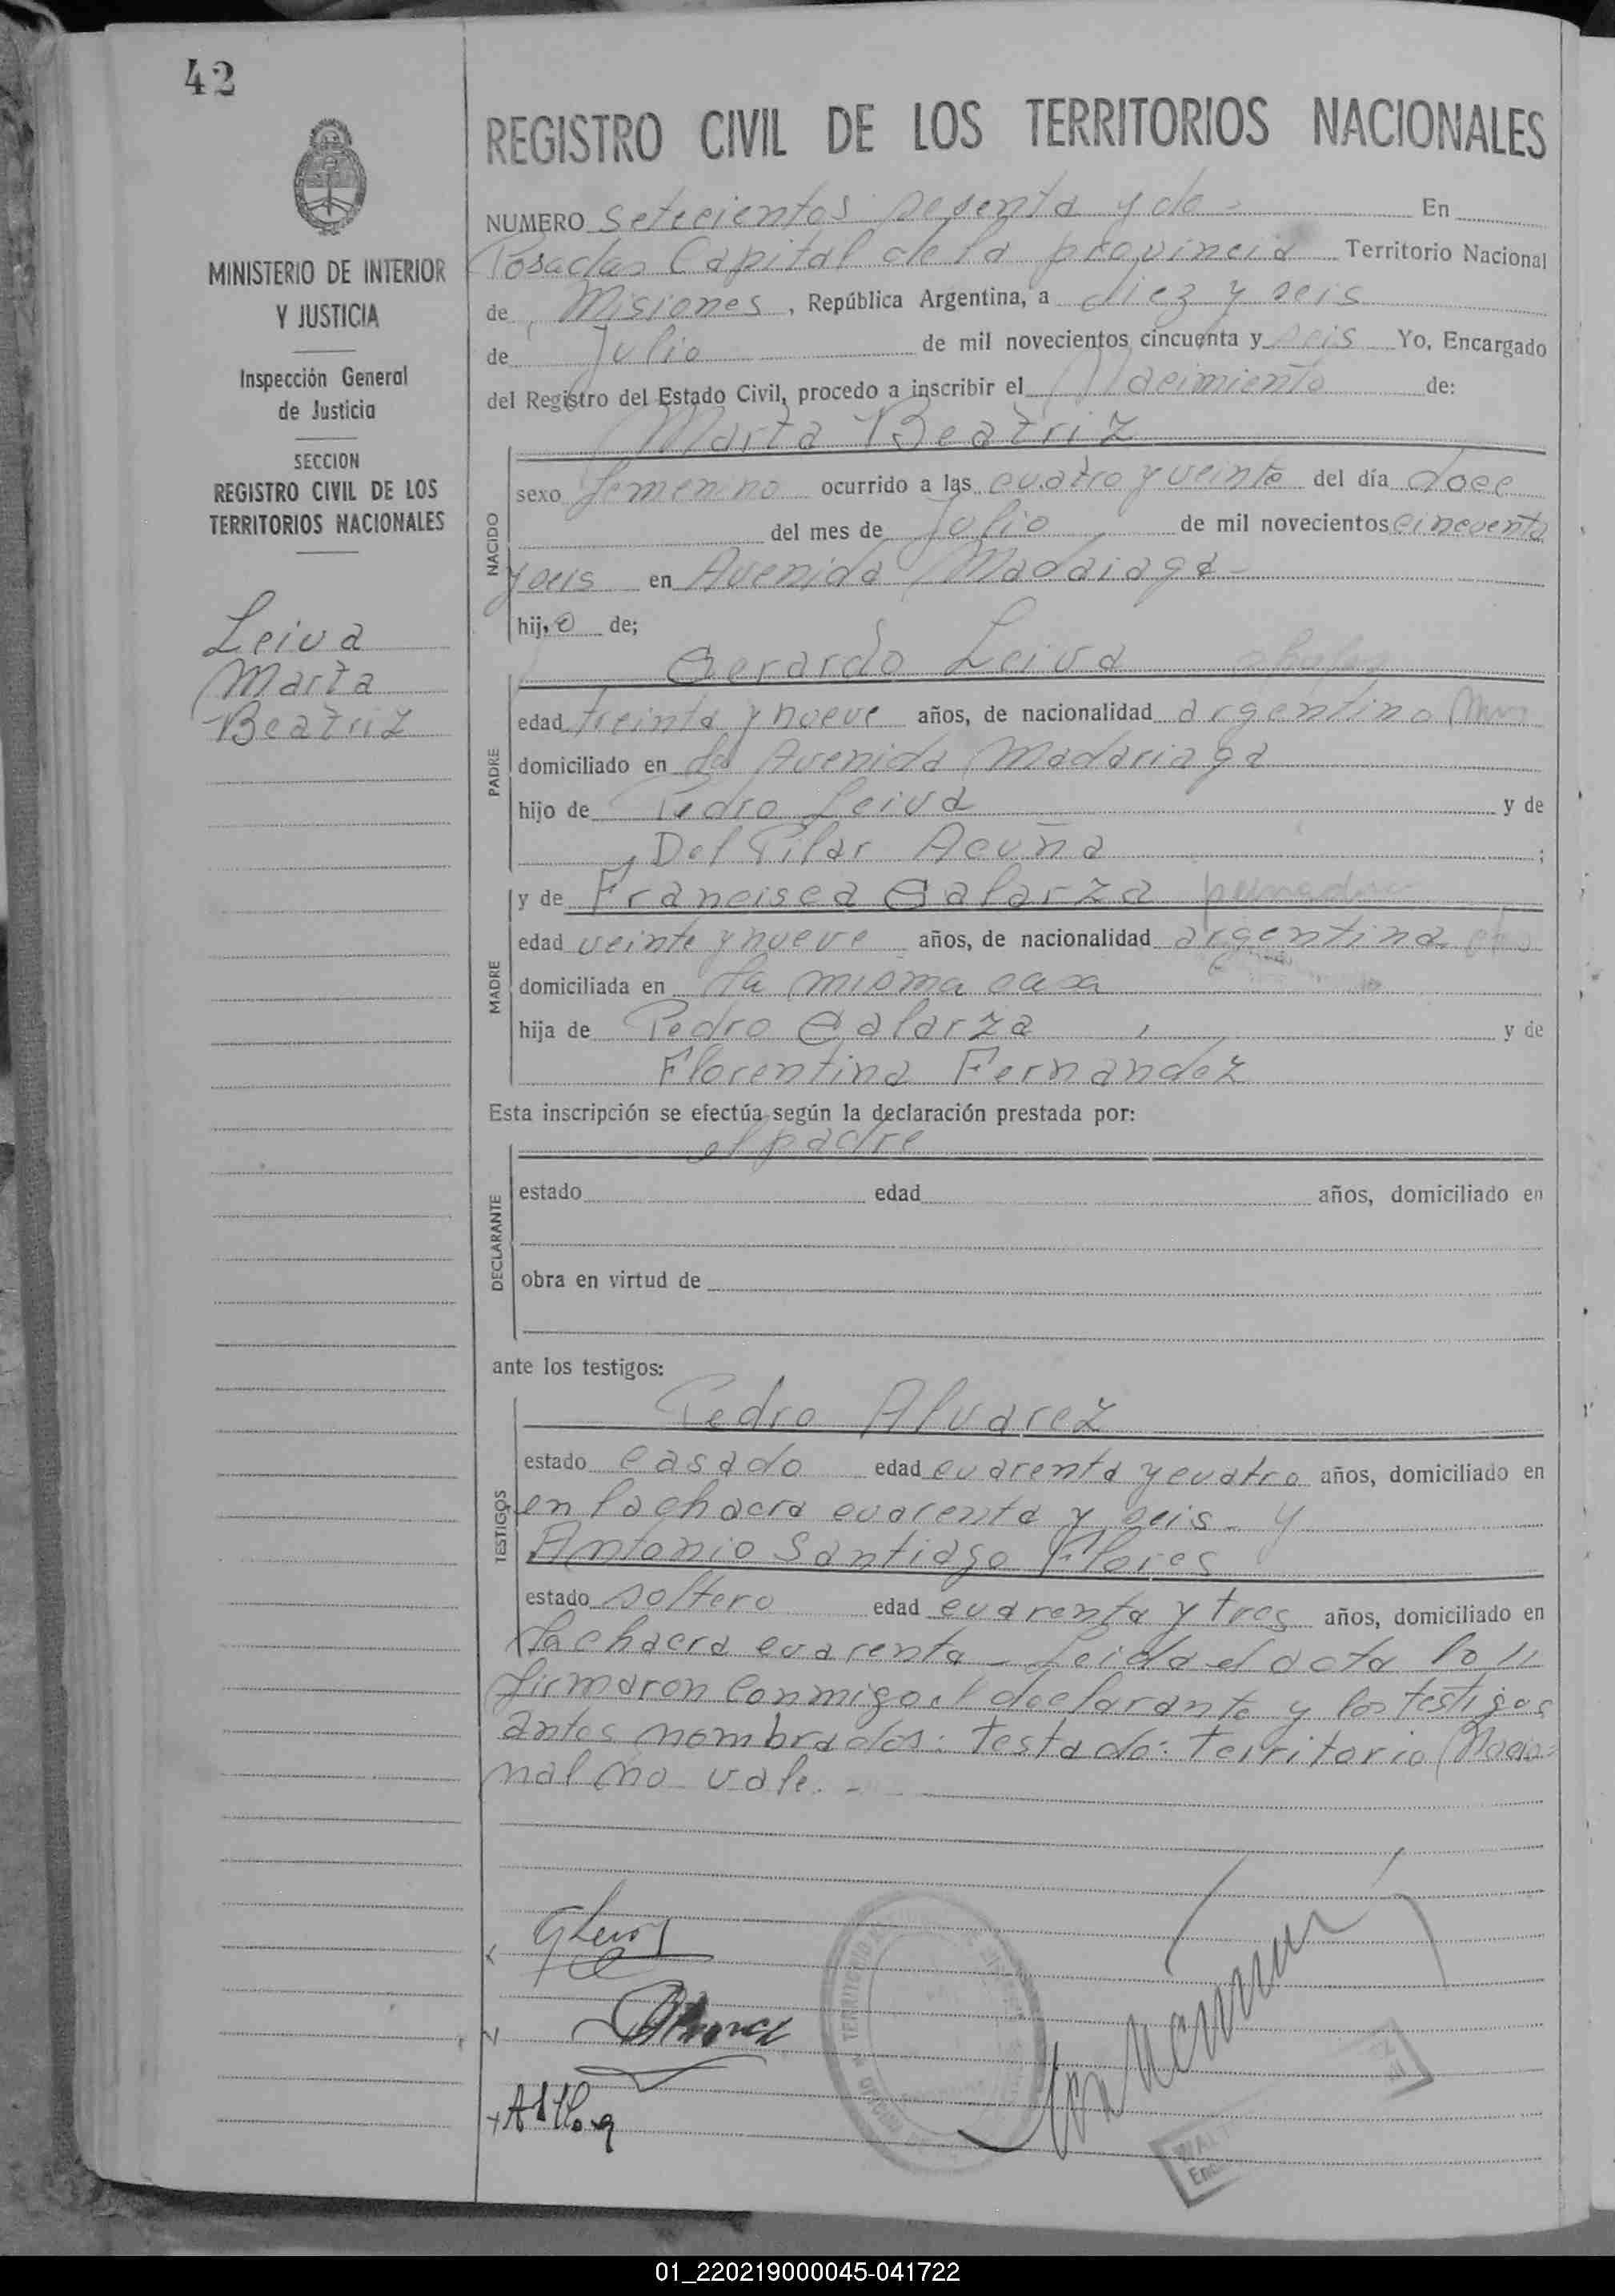 42
REGISTRO CIVIL DE LOS TERRITORIOS NACIONALES
NUMERO setecientos sesenta y do - En
Posadas Capital de la provincia Territorio Nacional
de Misiones, República Argentina, a diez y seis
de Julio de mil novecientos cincuenta y seis Yo, Encargado
del Registro del Estado Civil, procedo a inscribir el Nacimiento de:
MINISTERIO DE INTERIOR
Y JUSTICIA
Inspección General
de Justicia
SECCION
REGISTRO CIVIL DE LOS
TERRITORIOS NACIONALES
Leiva
Marta
Beatriz
NACIDO
Marta Beatriz
sexo femenino ocurrido a las cuatro y veinte del día doce
del mes de Julio de mil novecientos cincuenta
y seis en Avenida Madaiaga -
hij de;
PADRE
Gerardo Leiva
edad treinta y nueve años, de nacionalidad argentino
domiciliado en la Avenida Madariaga
hijo de Pedro Leiva y de
Del Pilar Acuña ;
MADRE
y de Francisca Galarza
edad veinte y nueve años, de nacionalidad argentina
domiciliada en la misma casa
hija de Pedro Galarza y de
Florentina Fernandez
Esta inscripción se efectúa según la declaración prestada por:
DECLARANTE
el padre
estado edad años, domiciliado en
obra en virtud de
ante los testigos:
TESTIGOS
Pedro Alvarez
estado casado edad cuarenta y cuatro años, domiciliado en
en la chacra cuarenta y seis - y
Antonio Santiago Flores
estado soltero edad cuarenta y tres años, domiciliado en
la chacra cuarenta - Leida el acta la
firmaron conmigo el declarante y los testigos
antes nombrados: testado: territorio Nacio=
nal no vale. -
01_220219000045-041722